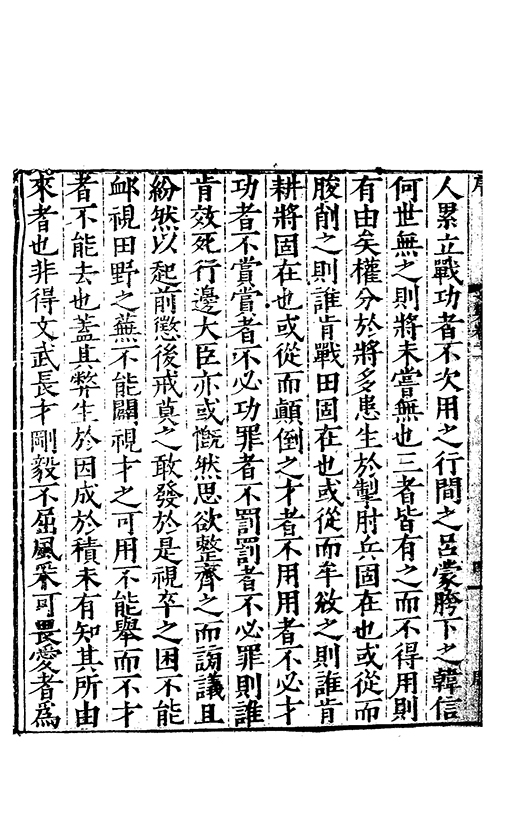 人累立戰功者不次用之行間之呂蒙胯下之韓信
何世無之則將未嘗無也三者皆有之而不得用則
有由矣權分於將多患生於掣肘兵固在也或從而
朘削之則誰肯戰田固在也或從而牟斂之則誰肯
耕將固在也或從而顛倒之才者不用用者不必才
功者不賞賞者不必功罪者不罰罰者不必罪則誰
肯效死行邊大臣亦或慨然思欲整齊之而謗議且
紛然以起前懲後戒莫之敢發於是視卒之困不能
䘏視田野之蕪不能闢視才之可用不能舉而不才
者不能去也蓋其弊生於因成於積未有知其所由
來者也非得文武長才剛毅不屈風采可畏愛者為